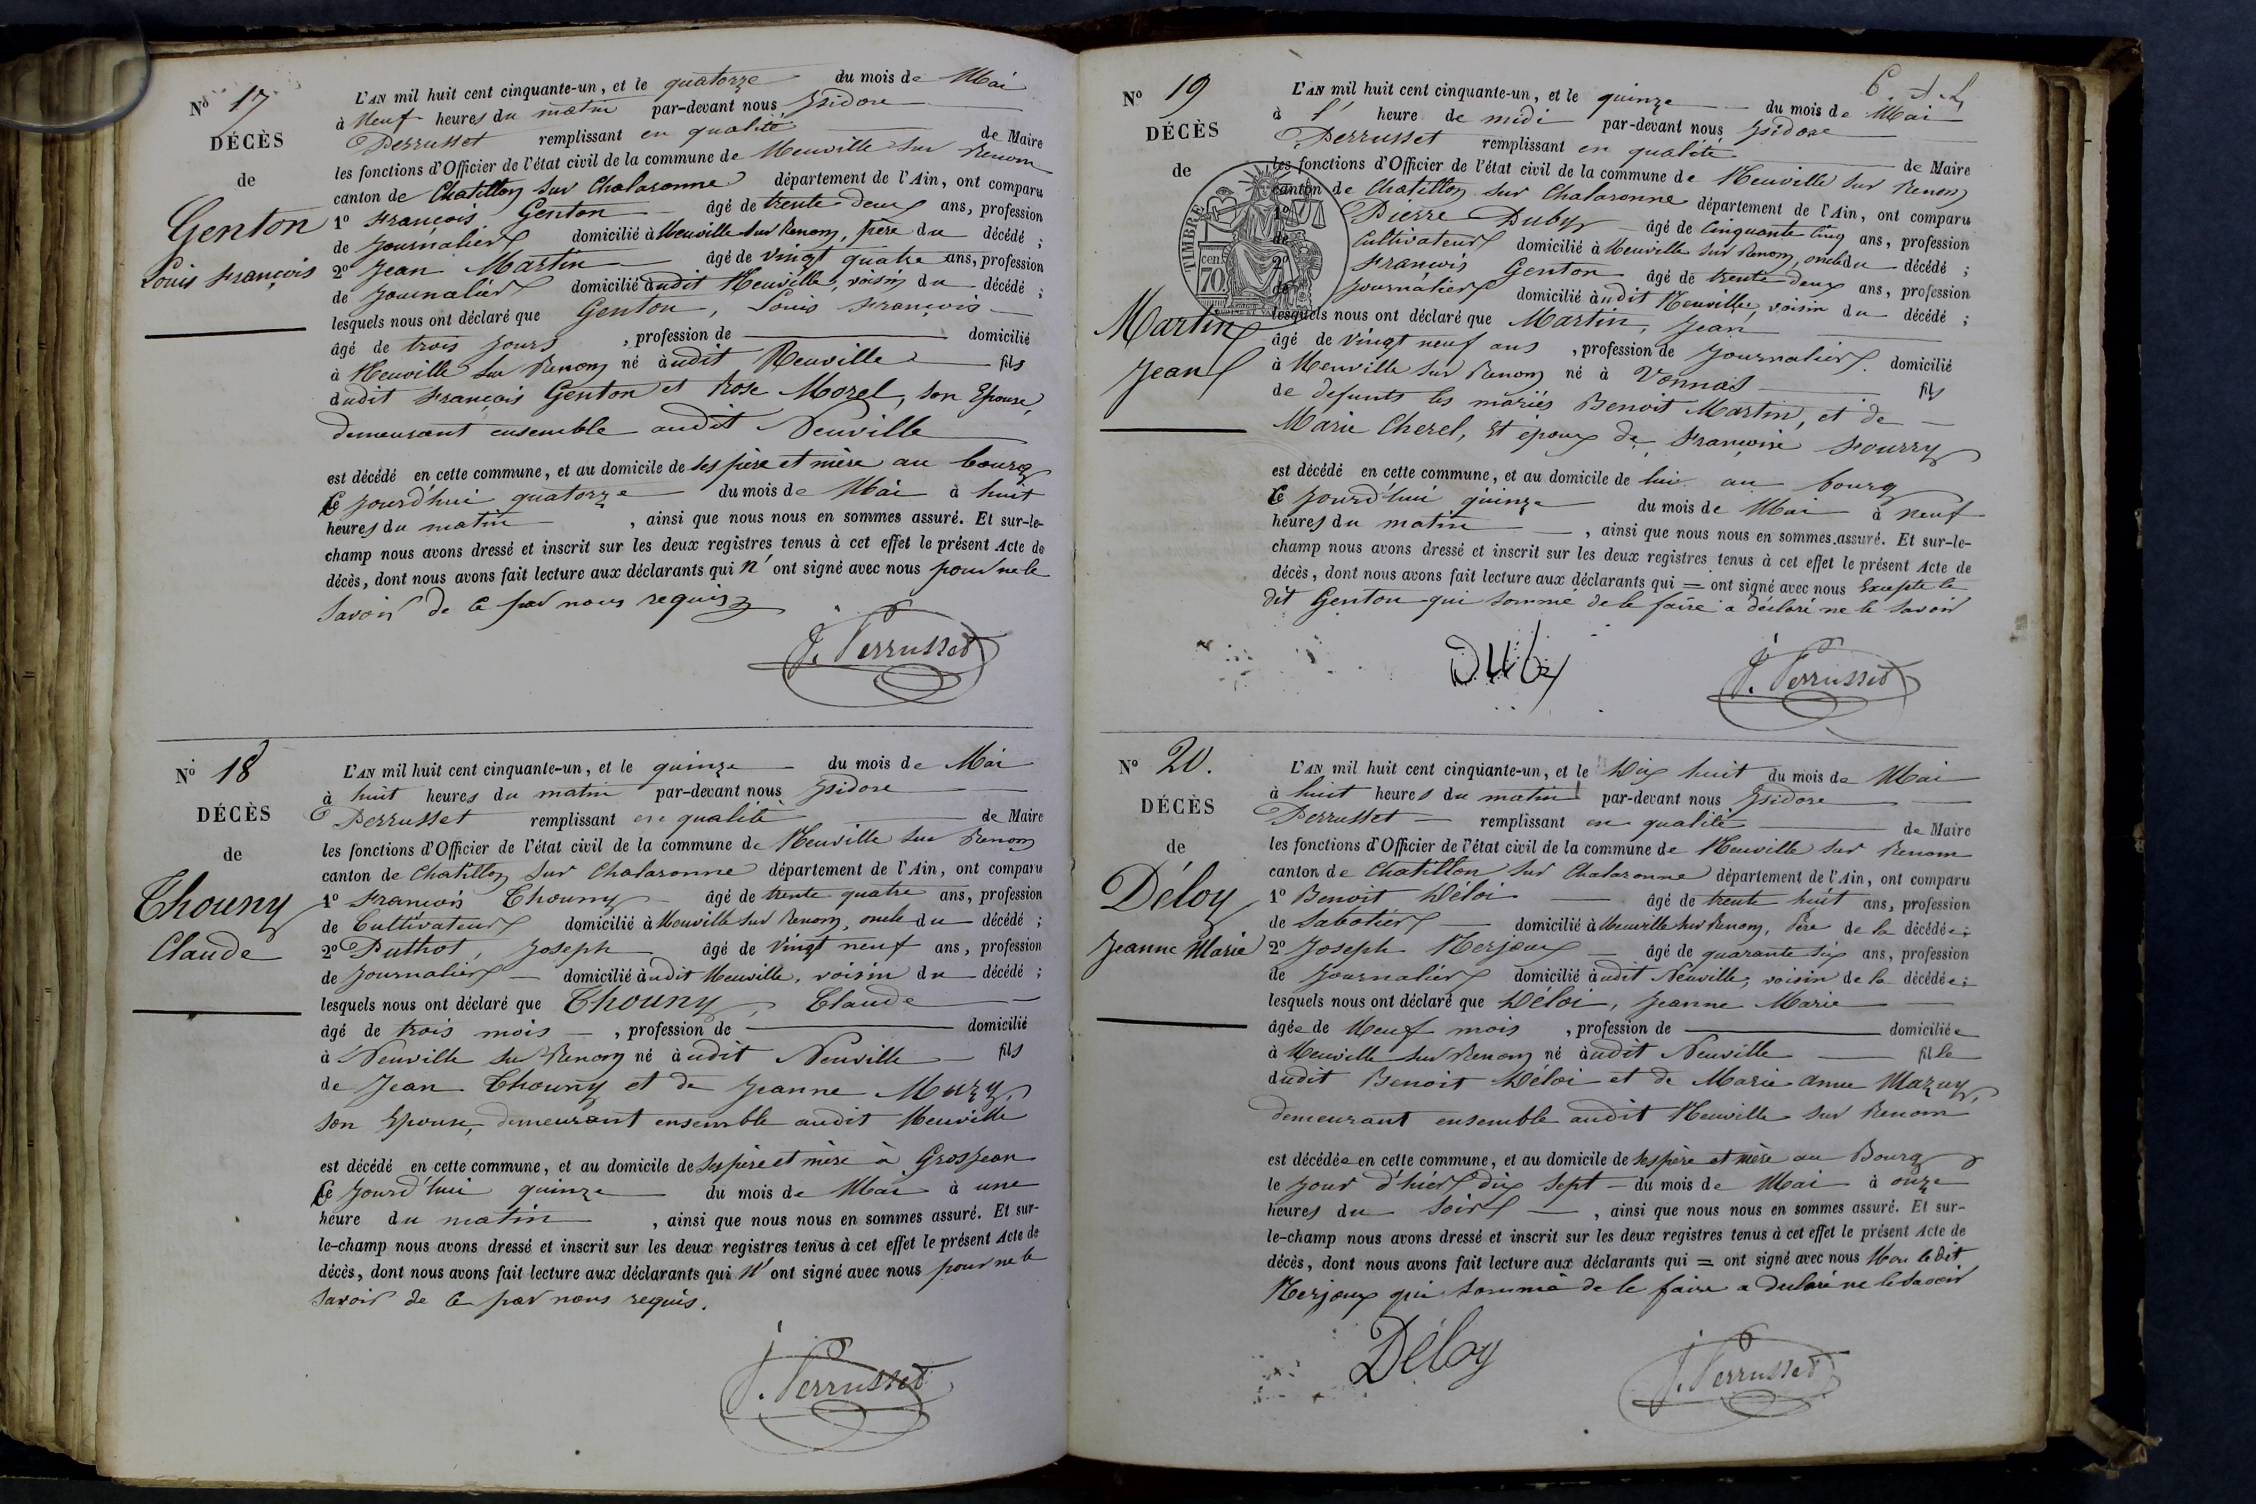 Nº 17
DÉCÈS
de
Genton
Louis François
L'AN mil huit cent cinquante-un, et le quatorze du mois de Mai
à Neuf heures du matin par-devant nous Isidore
Perrusset remplissant en qualité de Maire
les fonctions d'Officier de l'état civil de la commune de Neuville sur Renom
canton de Chatillon sur Chalaronne département de l'Ain, ont comparu
1º François Genton âgé de trente deux ans, profession
de Journalier domicilié à Neuville sur Renom, père du décédé ;
2º Jean Martin âgé de vingt quatre ans, profession
de Journalier domicilié audit Neuville, voisin du décédé ;
lesquels nous ont déclaré que Genton, Louis François
âgé de trois jours , profession de domicilié
à Neuville sur Renom né audit Neuville fils
dudit François Genton et Rose Morel, son Epouse,
demeurant ensemble audit Neuville
est décédé en cette commune, et au domicile de ses père et mère au bourg
Ce jourd'hui quatorze du mois de Mai à huit
heures du matin , ainsi que nous nous en sommes assuré. Et sur-le-
champ nous avons dressé et inscrit sur les deux registres tenus à cet effet le présent Acte de
décès, dont nous avons fait lecture aux déclarants qui n'ont signé avec nous pour ne le
savoir de ce par nous requis
J. Perrusset
Nº 18
DÉCÈS
de
Thouny
Claude
L'AN mil huit cent cinquante-un, et le quinze du mois de Mai
à huit heures du matin par-devant nous Isidore
Perrusset remplissant en qualité de Maire
les fonctions d'Officier de l'état civil de la commune de Neuville sur Renom
canton de Chatillon sur Chalaronne département de l'Ain, ont comparu
1º François Thouny âgé de trente quatre ans, profession
de Cultivateur domicilié à Neuville sur Renom, oncle du décédé ;
2º Puthot, Joseph âgé de vingt neuf ans, profession
de Journalier domicilié audit Neuville, voisin du décédé ;
lesquels nous ont déclaré que Thouny, Claude
âgé de trois mois , profession de domicilié
à Neuville sur Renom né audit Neuville fils
de Jean Thouny et de Jeanne
son Epouse, demeurant ensemble audit Neuville
est décédé en cette commune, et au domicile de ses père et mère à Grosjean
Ce jourd'hui quinze du mois de Mai à une
heure du matin , ainsi que nous nous en sommes assuré. Et sur-
le-champ nous avons dressé et inscrit sur les deux registres tenus à cet effet le présent Acte de
décès, dont nous avons fait lecture aux déclarants qui n'ont signé avec nous pour ne le
savoir de ce par nous requis.
J. Perrusset
Nº 19
DÉCÈS
de
TIMBRE
70 cen
Martin
Jean
L'AN mil huit cent cinquante-un, et le quinze du mois de Mai
à l' heure de midi par-devant nous Isidore
Perrusset remplissant en qualité de Maire
les fonctions d'Officier de l'état civil de la commune de Neuville sur Renom
canton de Chatillon sur Chalaronne département de l'Ain, ont comparu
1º Pierre Duby âgé de Cinquante cinq ans, profession
de Cultivateur domicilié à Neuville sur Renom, oncle du décédé ;
2º François Genton âgé de trente deux ans, profession
de Journalier domicilié audit Neuville, voisin du décédé ;
lesquels nous ont déclaré que Martin, Jean
âgé de vingt neuf ans , profession de Journalier domicilié
à Neuville sur Renom né à Vonnas fils
de defunts les mariés Benoit Martin, et de
Marie Cherel, Et époux de Françoise Fourry
est décédé en cette commune, et au domicile de lui au bourg
Ce jourd'hui quinze du mois de Mai à neuf
heures du matin , ainsi que nous nous en sommes assuré. Et sur-le-
champ nous avons dressé et inscrit sur les deux registres tenus à cet effet le présent Acte de
décès, dont nous avons fait lecture aux déclarants qui = ont signé avec nous Excepté le
dit Genton qui sommé de le faire a déclaré ne le savoir
Duby
J. Perrusset
Nº 20.
DÉCÈS
de
Déloy
Jeanne Marie
L'AN mil huit cent cinquante-un, et le Dix huit du mois de Mai
à huit heures du matin par-devant nous Isidore
Perrusset remplissant en qualité de Maire
les fonctions d'Officier de l'état civil de la commune de Neuville sur Renom
canton de Chatillon sur Chalaronne département de l'Ain, ont comparu
1º Benoit Déloi âgé de trente huit ans, profession
de Sabotier domicilié à Neuville sur Renom, Père de la décédée ;
2º Joseph Nerjoux âgé de quarante six ans, profession
de Journalier domicilié audit Neuville, voisin de la décédée ;
lesquels nous ont déclaré que Déloi, Jeanne Marie
âgée de Neuf mois , profession de domiciliée
à Neuville sur Renom né audit Neuville fille
dudit Benoit Déloi et de Marie anne Mazuy,
demeurant ensemble audit Neuville sur Renom
est décédée en cette commune, et au domicile de ses père et mère au Bourg
le jour d'hier dix sept du mois de Mai à onze
heures du soir , ainsi que nous nous en sommes assuré. Et sur-
le-champ nous avons dressé et inscrit sur les deux registres tenus à cet effet le présent Acte de
décès, dont nous avons fait lecture aux déclarants qui = ont signé avec nous Non le dit
Nerjoux qui sommé de le faire a déclaré ne le savoir
Déloy
J. Perrusset